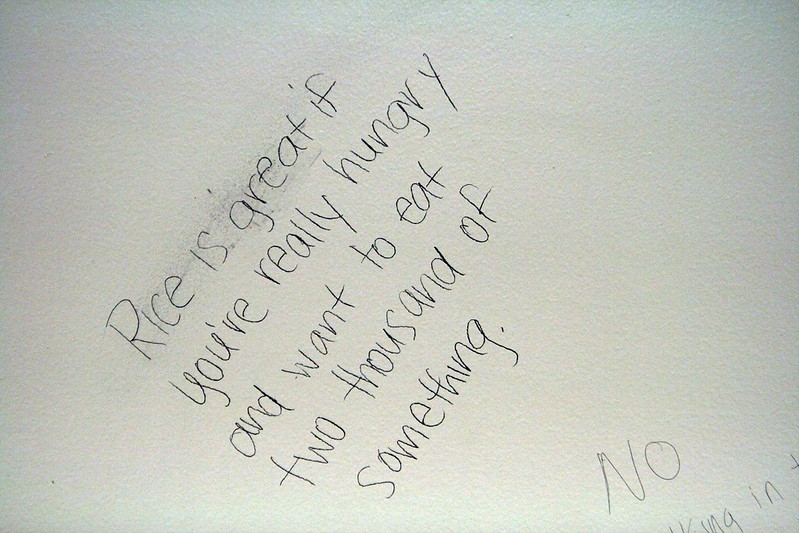 Rice is great if
you're really hungry
and want to eat
two thousand of
something.
NO
in